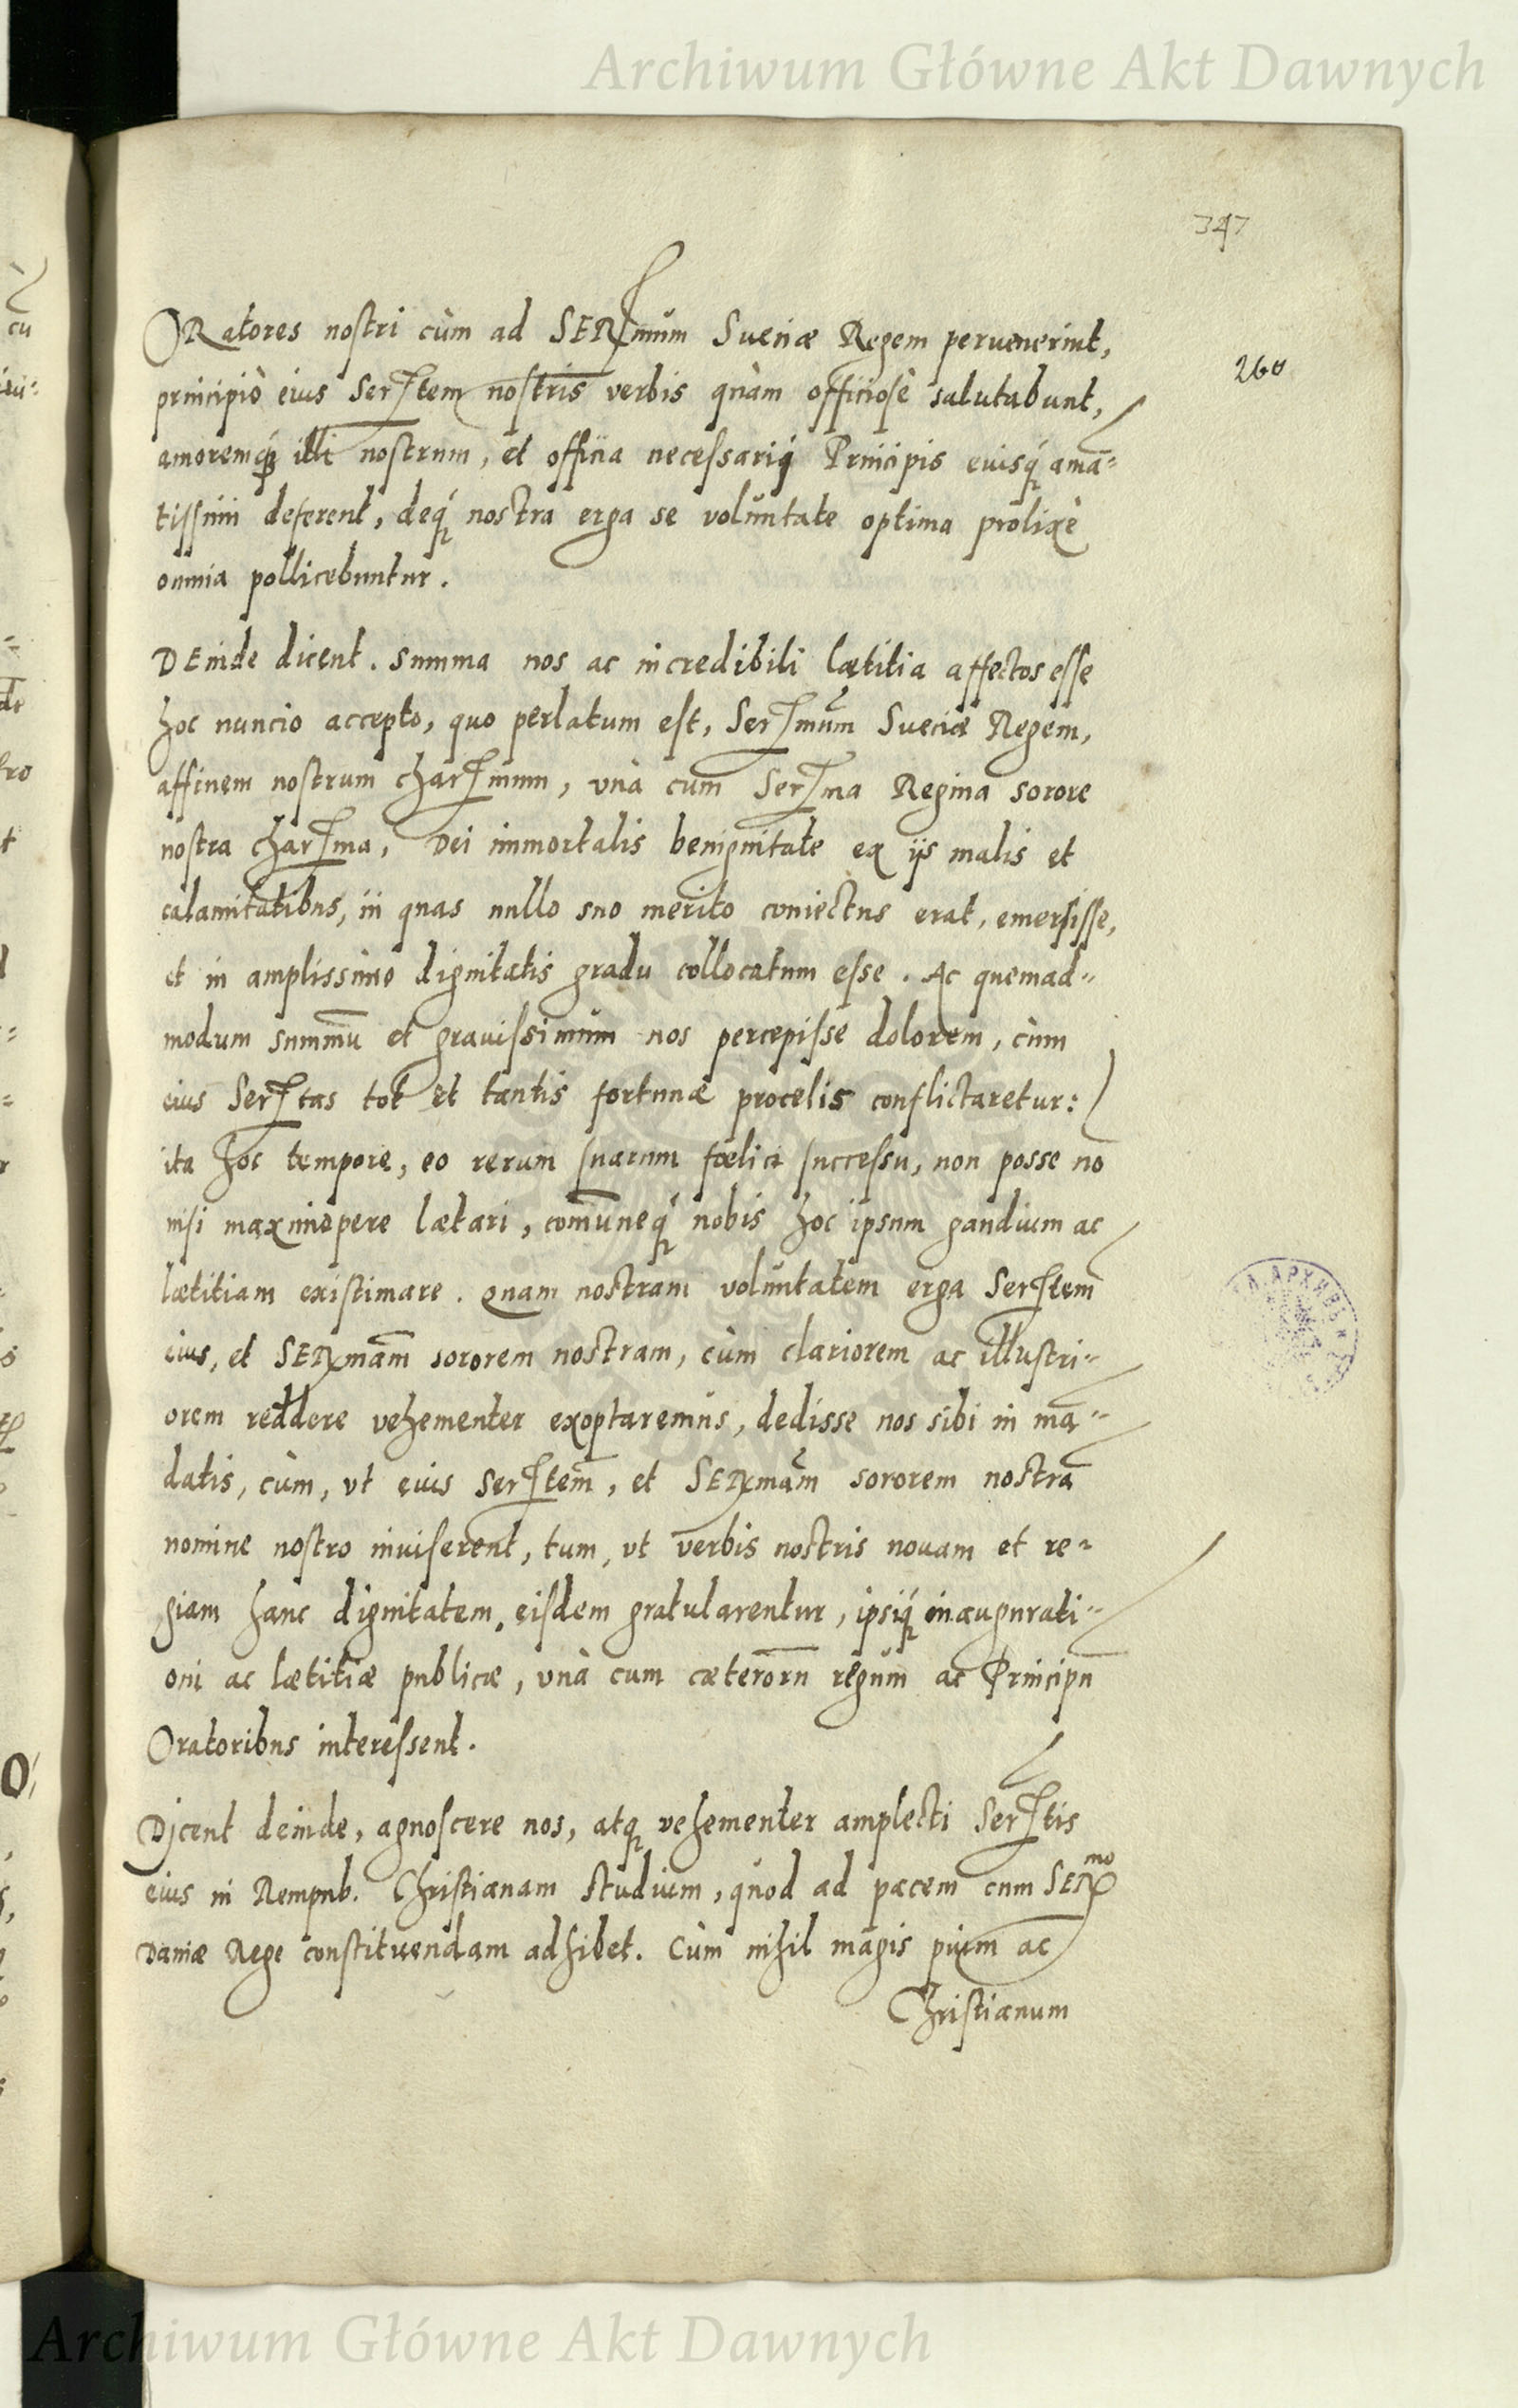 Archiwum Główne Akt Dawnych
347
260
ORatores nostri cùm ad SERmum Sueciæ Regem peruenerint,
principiò eius Sertem nostris verbis quàm officiosè salutabunt,
amoremq́ illi nostrum, et officia necessarij Principis eiusq́ ama=
tissimi deferent, deq́ nostra erga se voluntate optima prolixè
omnia pollicebuntur.
DEinde dicent. Summa nos ac incredibili lætitia affectos esse
hoc nuncio accepto, quo perlatum est, Sermum Sueciæ Regem,
affinem nostrum charmum, vnà cum Serma Regina sorore
nostra charma, Dei immortalis benignitate ex ijs malis et
calamitatibus, in quas nullo suo merito coniectus erat, emersisse,
et in amplissimo dignitatis gradu collocatum esse. Ac quemad=
modum summū et grauissimum nos percepisse dolorem, cùm
eius Sertas tot et tantis fortunæ procelis conflictaretur:
ita hoc tempore, eo rerum suarum fœlici successu, non posse no
nisi maximopere lætari, comūneq́ nobis hoc ipsum gaudium ac
lætitiam existimare. Quam nostram voluntatem erga Sertem
eius, et SERmam sororem nostram, cùm clariorem ac illustri=
orem reddere vehementer exoptaremus, dedisse nos sibi in mā=
datis, cùm, vt eius Sertem, et SERmam sororem nostrā
nomine nostro inuiserent, tum, vt verbis nostris nouam et re=
giam hanc dignitatem, eisdem gratularentur, ipsiq́ inaugurati=
oni ac lætitiæ publicæ, vnà cum cæterorū regum ac Principū
Oratoribus interessent.
Dicent deinde, agnoscere nos, atq vehementer amplecti Sertis
eius in Rempub. Christianam studium, quod ad pacem cum SERmo
Daniæ Rege constituendam adhibet. Cùm nihil magis pium ac
Christianum
Archiwum Główne Akt Dawnych